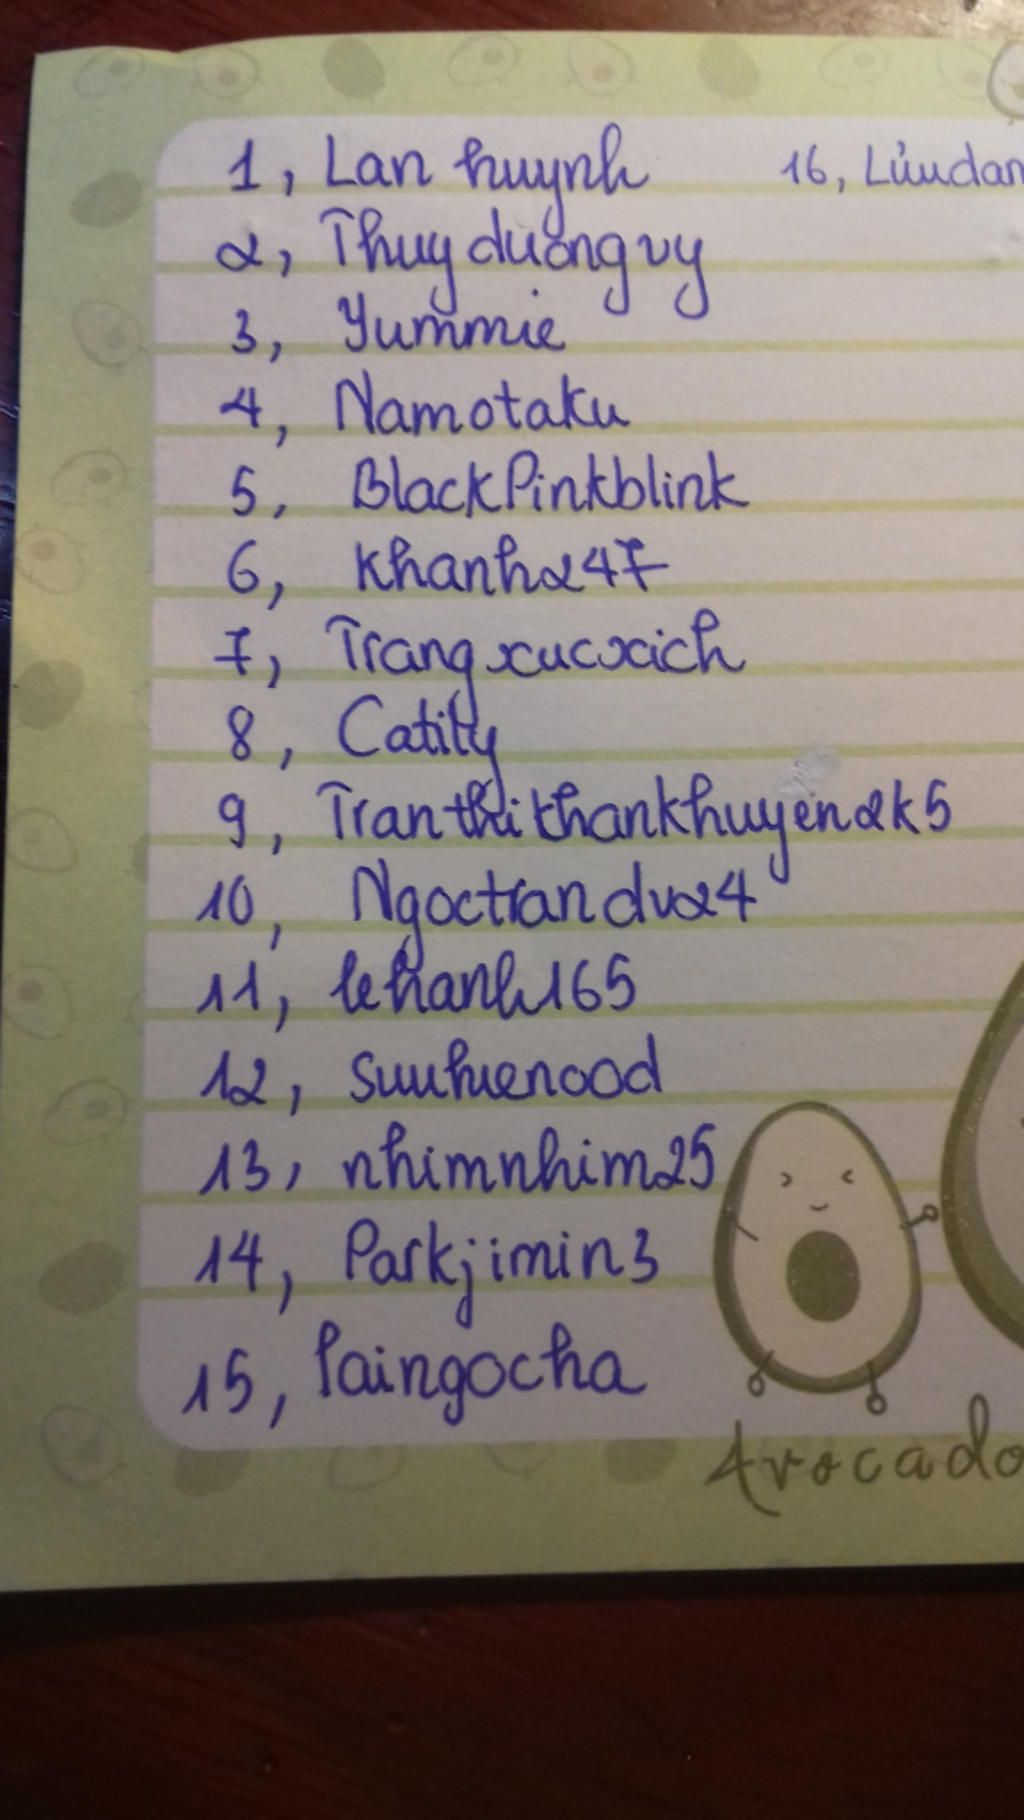 1, Lan huynh
2, Thuy duongvy
3, Yummie
4, Namotaku
5, BlackPinkblink
6, Khanh247
7, Trangxucxich
8, Catily
9, Tranthikhankhuyen2k5
10, Ngoctrandv24
11, lehanh165
12, suuhienood
13, nhimnhim25
14, Parkjimin3
15, laingocha
16, Lửudan
Avocado